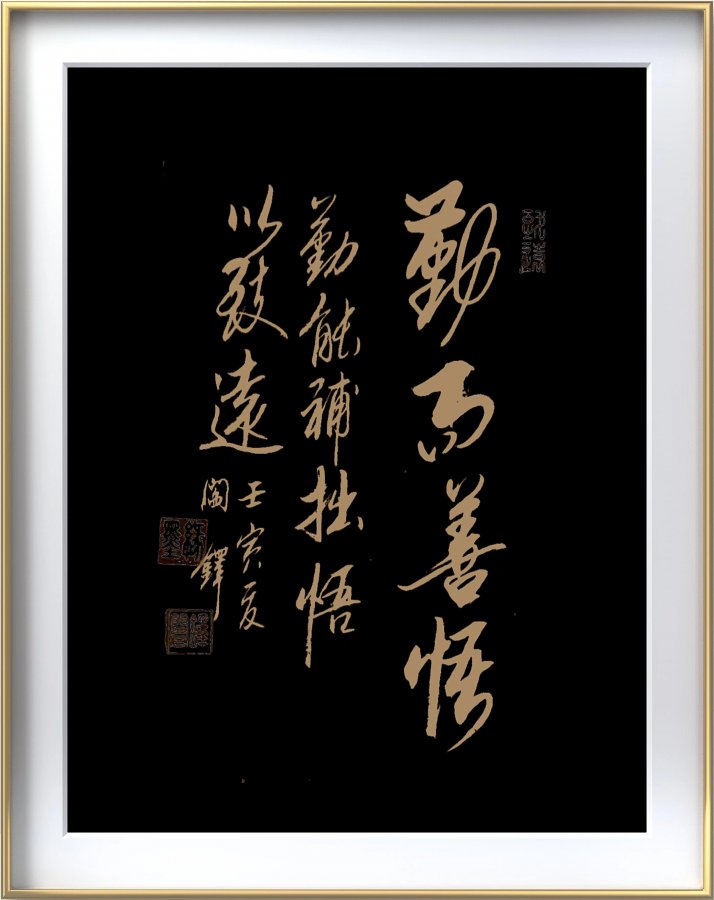 勤而善悟
勤能補拙悟
以致遠
壬寅夏
鐸